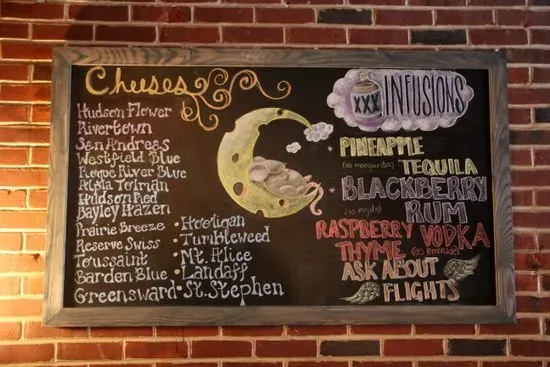 Cheeses
Hudson Flower
Rivertown
San Andreas
Westfield Blue
Rogue River Blue
Alpha Tolman
Hudson Red
Bayley Hazen
Prairie Breeze
Reserve Swiss
Toussaint
Barden Blue
Greensward
• Hooligan
• Tumbleweed
• Mt. Alice
• Landaff
• St. Stephen
XXX INFUSIONS
* PINEAPPLE
(as margarita) TEQUILA
* BLACKBERRY
(as mojito) RUM
RASPBERRY VODKA
THYME (as lemonade)
ASK ABOUT
FLIGHTS